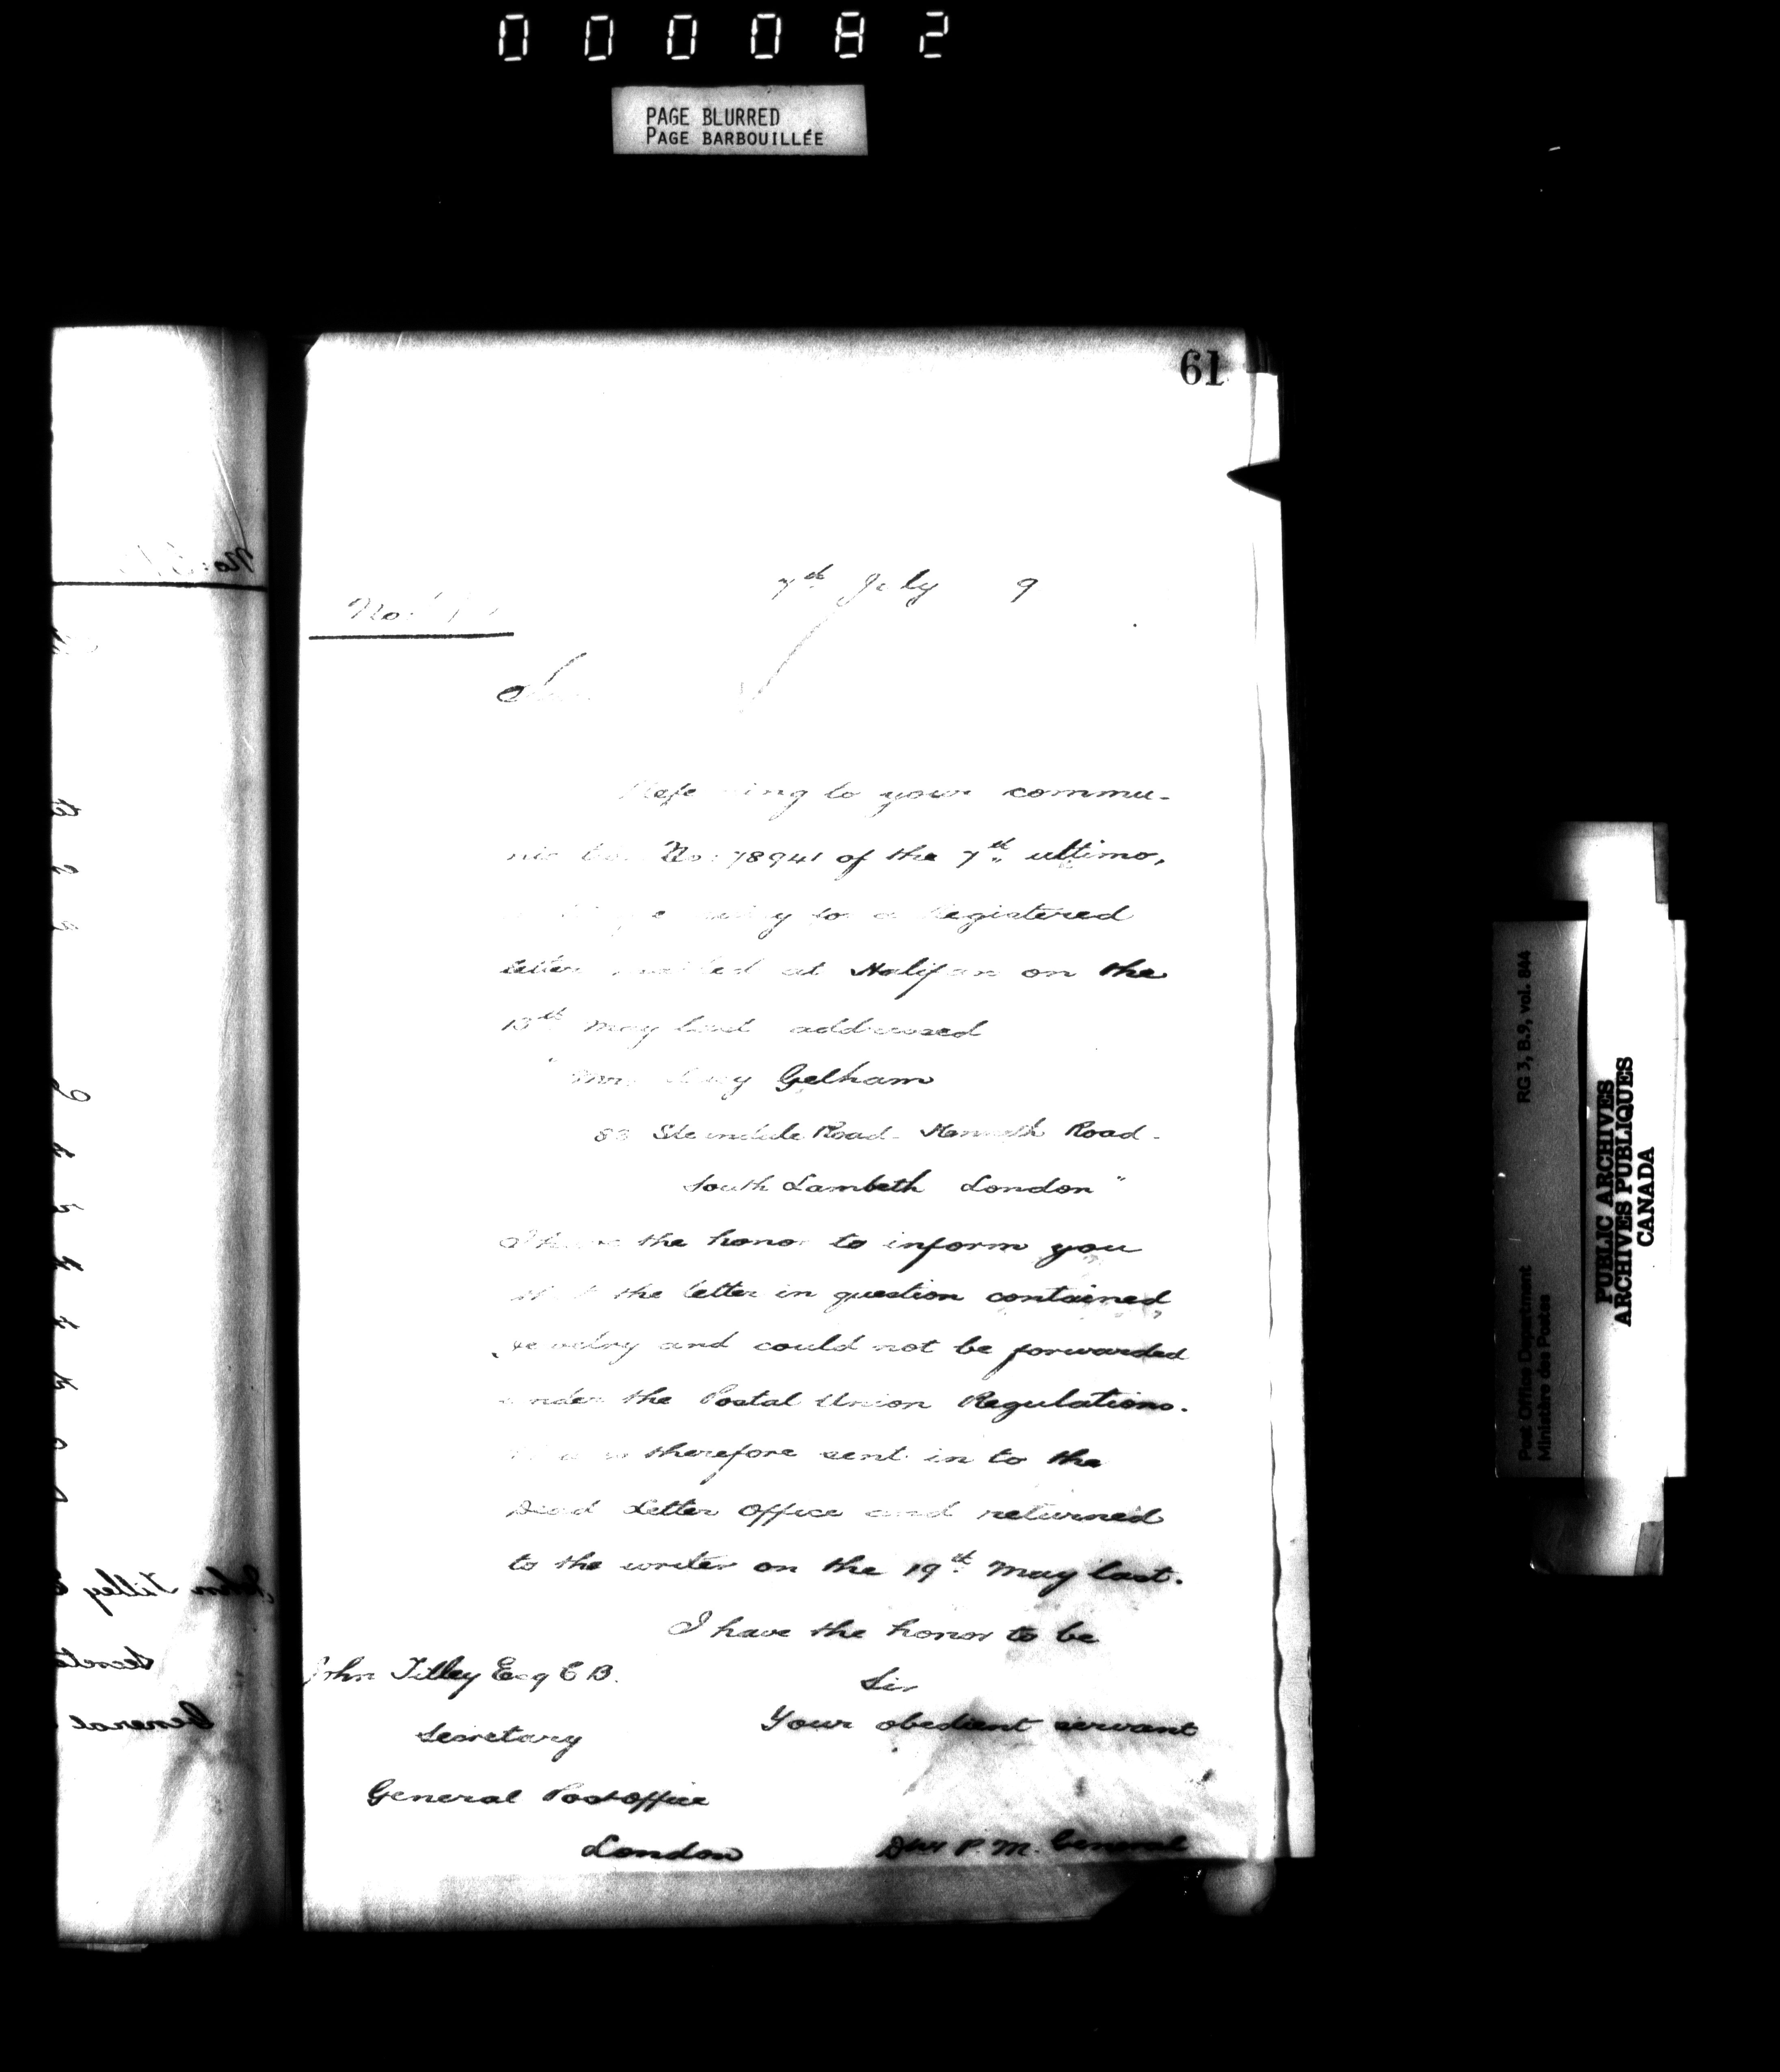 000082
PAGE BLURRED
PAGE BARBOUILLÉE
61
7th July 9
No.
Sir
Referring to your commu-
nication No: 78941 of the 7th ultimo,
registered
letter mailed at Halifax on the
13th May last addressed
"Mrs Gelham
83 Road - Road -
South Lambeth London"
I have the honor to inform you
that the letter in question contained
jewelry and could not be forwarded
under the Postal Union Regulations.
It was therefore sent in to the
Dead Letter Office and returned
to the writer on the 19th May last.
I have the honor to be
Sir
Your obedient servant
John Tilley Esq C B.
Secretary
General Post Office
London
P. M. General
John Tilley
General
RG 3, B.9, vol. 844
Post Office Department
Ministère des Postes
PUBLIC ARCHIVES
ARCHIVES PUBLIQUES
CANADA